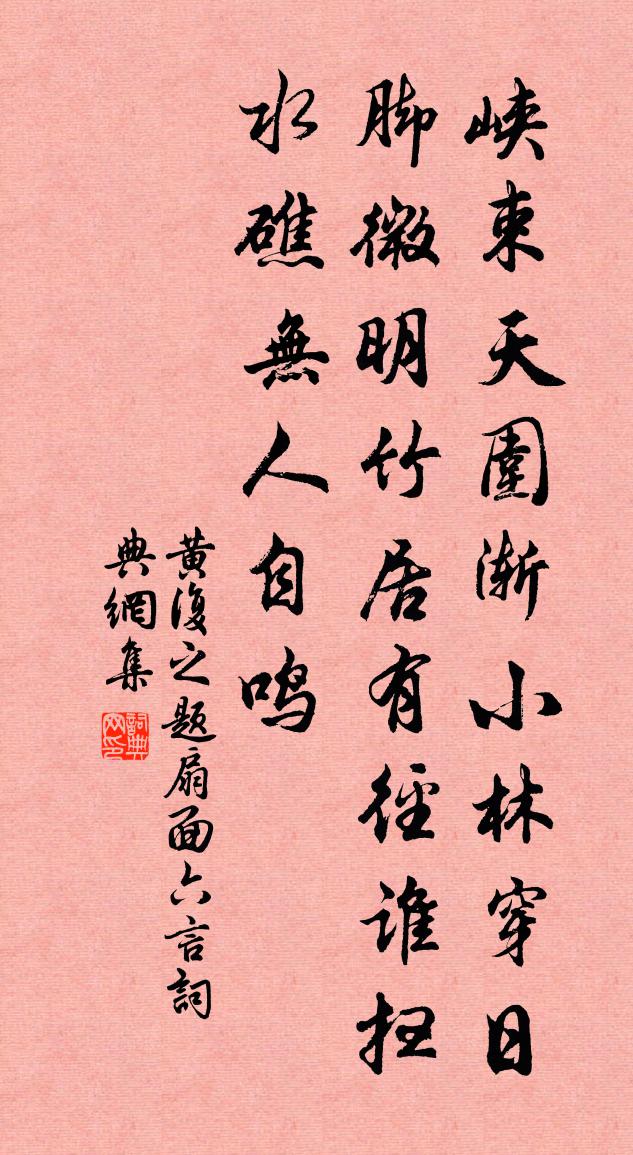 峽束天圍漸小林穿日
脚微明竹居有徑誰扫
水礁無人自鳴
黄復之題扇面六言詞
典網集
詞典网印